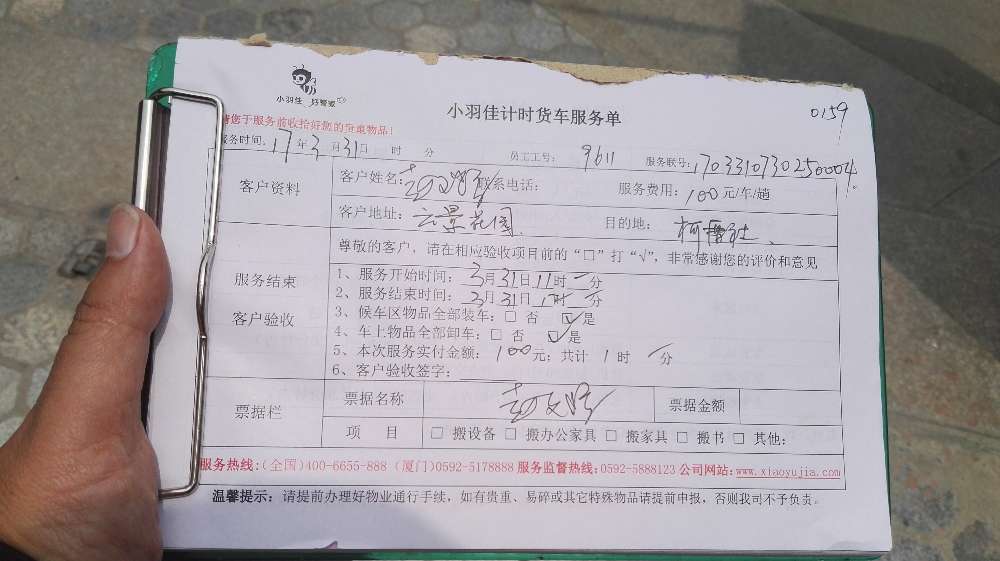 小羽佳 好管家
小羽佳计时货车服务单
0159
请您于服务前收拾好您的贵重物品!
服务时间: 17年3月31日 时 分 员工工号: 9611 服务联号: 17033107302500004
客户资料
客户姓名: 联系电话: 服务费用: 100元/车/趟
客户地址: 云景花园 目的地:
服务结束
客户验收
尊敬的客户,请在相应验收项目前的“□”打“√”,非常感谢您的评价和意见
1、服务开始时间: 3月31日11时一分
2、服务结束时间: 3月31日 时 分
3、候车区物品全部装车: □ 否 ☑是
4、车上物品全部卸车: □ 否 ☑是
5、本次服务实付金额: 100元; 共计 1 时 分
6、客户验收签字:
票据栏
票据名称 票据金额
项 目 □ 搬设备 □ 搬办公家具 □ 搬家具 □ 搬书 □ 其他:
服务热线:(全国)400-6655-888 (厦门)0592-5178888 服务监督热线:0592-5888123 公司网站:www.xiaoyujia.com
温馨提示: 请提前办理好物业通行手续,如有贵重、易碎或其它特殊物品请提前申报,否则我司不予负责。